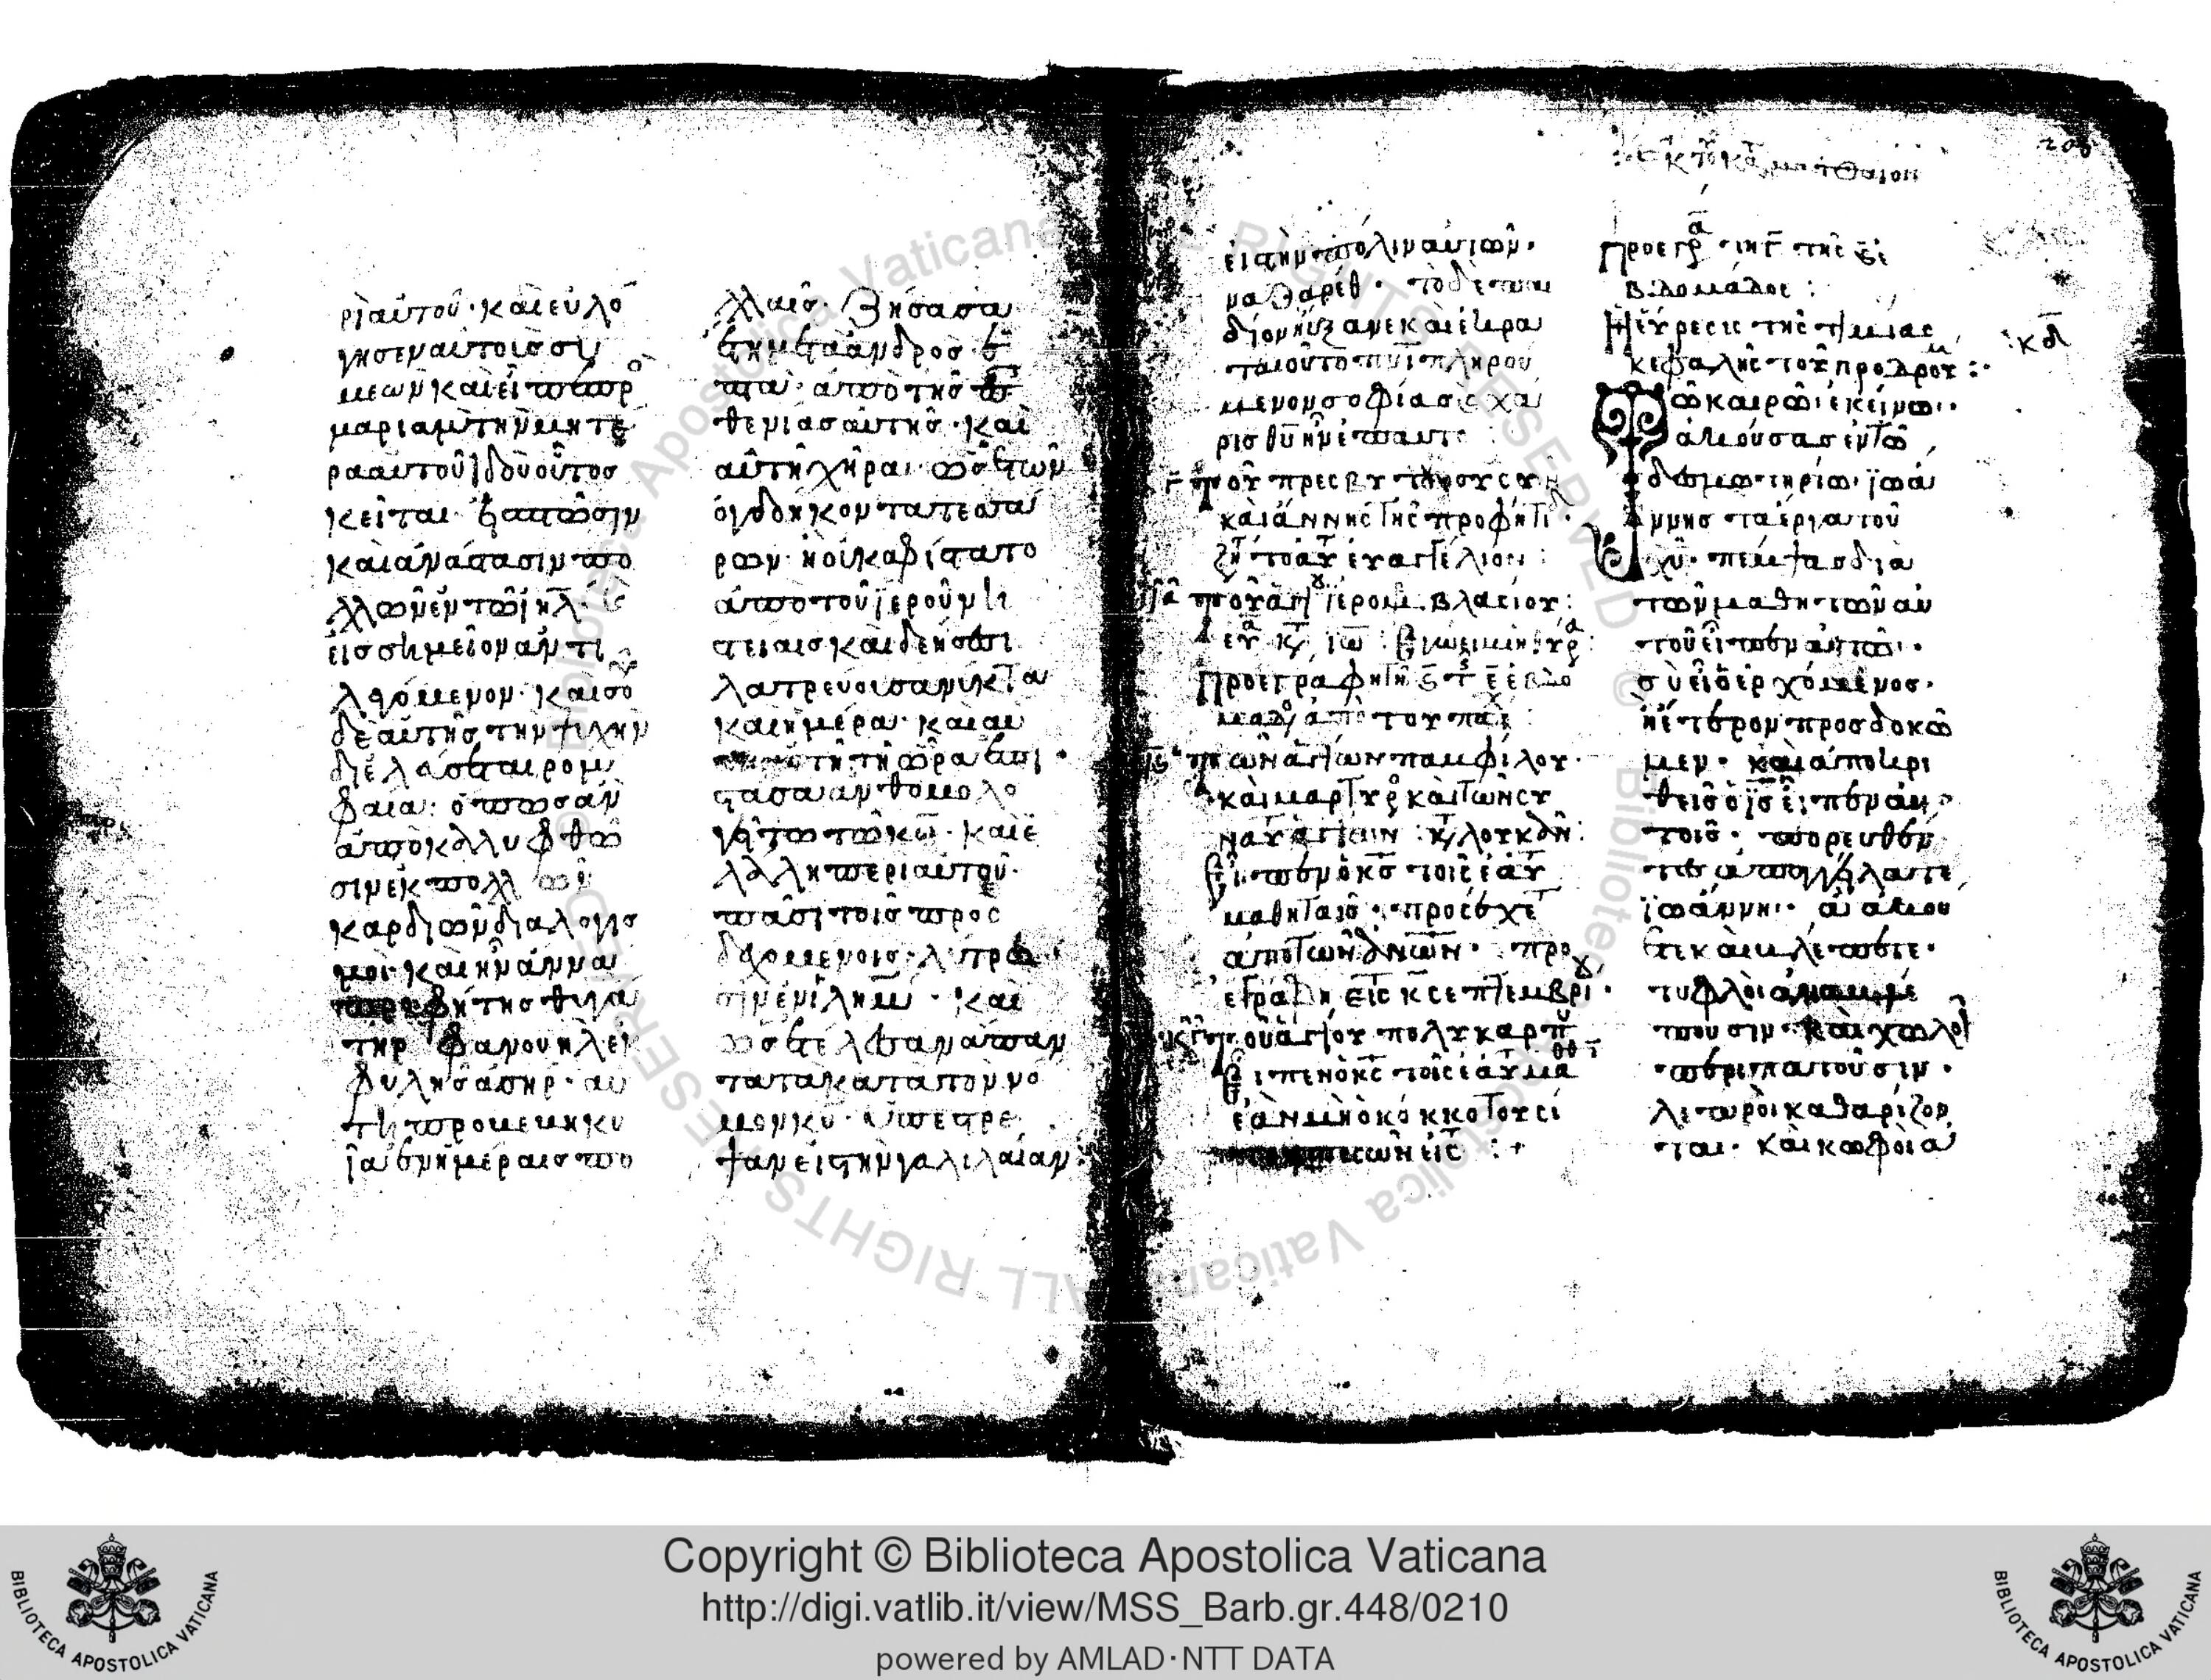 ρὶ αὐτοῦ· καὶ εὐλό
γησεν αὐτοῖς συ
μεὼν καὶ εἶπε πρ
μαριὰμ τὴν μητέ
ρα αὐτοῦ ἰδοὺ οὗτος
κεῖται εἰς πτῶσιν
καὶ ἀνάστασιν πο
λλῶν ἐν τῷ ιηλ·
εἰς σημεῖον ἀντι
λεγόμενον· καὶ σοῦ
δὲ αὐτῆς τὴν ψυχὴν
διελεύσεται ρομ
φαία· ὅπως ἂν
ἀποκαλυφθῶ
σιν ἐκ πολλῶν
καρδιῶν διαλογισ
μοί· καὶ ἦν ἄννα
προφῆτης θυγά
τηρ φανουὴλ ἐκ
φυλῆς ἀσήρ· αὐ
τη προβεβηκυ
ῖα ἐν ἡμέραις πο
λλαῖς· ζήσασα
ἔτη μετὰ ἀνδρὸς
ἀπὸ τῆς
θενίας αὐτῆς· καὶ
αὐτὴ χήρα· ὡς ἐτῶν
ὀγδοήκοντα τεσσά
ρων· ἣ οὐκ ἀφίστατο
ἀπὸ τοῦ ἱεροῦ νη
στείαις καὶ δεήσεσι
λατρεύουσα νύκτα
καὶ ἡμέραν· καὶ αὐ
τῇ τῇ ὥρα ἐπι
στᾶσα ἀνθομολο
γεῖτο τῷ κω· καὶ ἐ
λάλη περὶ αὐτοῦ·
πᾶσι τοῖς προς
δεχομένοις λύτρω
σιν ἐν ιλημ· καὶ
ὡς ἐτέλεσαν ἅπαν
τα τὰ κατὰ τὸν νό
μον κυ· ὑπέστρε
ψαν εἰς τὴν γαλιλαίαν·
εἰς τὴν πόλιν αὐτῶν·
ναζαρέθ· τὸ δὲ παι
δίον ηὔξανε καὶ ἐκρα
ταιοῦτο πνι πληρού
μενον σοφίας χά
ρις θυ ἦν ἐπ αὐτό
τοῦ πρεσβυτέρου συ
καὶ ἄννης τῆς προφητι·
ζη τὸ αυ εὐαγγέλιον:
τοῦ ἁγι ἱερομ βλασίου:
ευ κτ ιω:
προεγράφη
τῶν ἁγίων παμφίλου·
καὶ μαρτυρ καὶ τῶν συ
ν αυ ἁγίων κτ λουκαν:
εἶπεν ὁ κς τοῖς ἑαυ
μαθηταῖς· προσέχετ
ἀπὸ τῶν ανων· προ
εγράφη εἰς κ σεπτεμβρι·
κγ τοῦ ἁγίου πολυκαρπ
εἶπεν ὁ κς τοῖς ἑαυ μα
ἐὰν μὴ ὁ κόκκος τοῦ σί
πεσὼν εἰς:+
208
κτ ματθαιον
προεγρ
βδομάδος:
Ἡ εὕρεσις τῆς τιμίας
κδ
κεφαλῆς τοῦ προδρομ:
Τῷ καιρῷ ἐκείνω·
ἀκούσας ἐν τῷ
δεσμωτηρίω ἰωά
ννης τὰ ἔργα τοῦ
χυ· πέμψας διὰ
τῶν μαθητῶν αὐ
τοῦ εἶπεν αὐτῷ·
σὺ εἶ ὁ ἐρχόμενος·
ἢ ἕτερον προσδοκῶ
μεν· καὶ ἀποκρι
θεὶς ὁ ις εἶπεν αὐ
τοῖς· πορευθέν
τες ἀπαγγείλατε
ἰωάννη· ἃ ἀκού
ετε καὶ βλέπετε·
τυφλοὶ ἀναβλέ
πουσιν· καὶ χωλοὶ
περιπατοῦσιν·
λεπροὶ καθαρίζον
ται· καὶ κωφοὶ ἀ
Copyright © Biblioteca Apostolica Vaticana
http://digi.vatlib.it/view/MSS_Barb.gr.448/0210
powered by AMLAD·NTT DATA
BIBLIOTECA APOSTOLICA VATICANA
BIBLIOTECA APOSTOLICA VATICANA